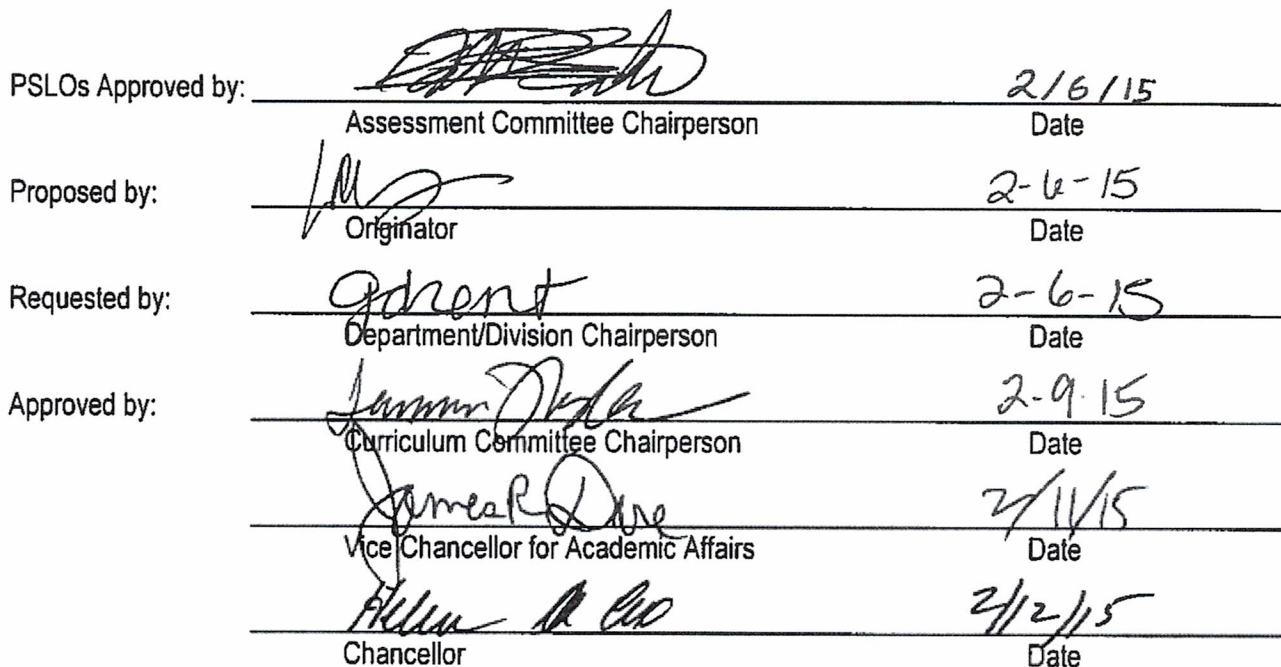 PSLOs Approved by: 2/6/15
Assessment Committee Chairperson Date
Proposed by: 2-6-15
Originator Date
Requested by: 2-6-15
Department/Division Chairperson Date
Approved by: 2-9-15
Curriculum Committee Chairperson Date
James R Dire 2/11/15
Vice Chancellor for Academic Affairs Date
Helen 2/12/15
Chancellor Date